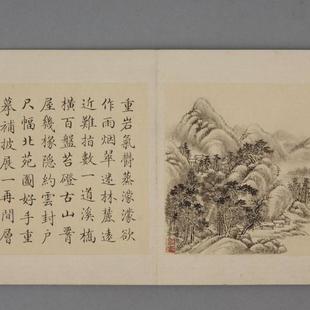 重岩氣欝蒸濛濛欲
作雨烟翠迷林麓遠
近難指數一道溪橋
橫百盤苔磴古山
屋幾椽隱約雲封戶
尺幅北苑圖好手重
摹補披展一再間層